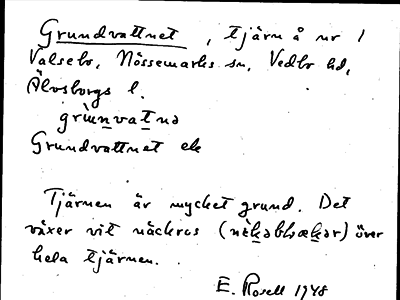 Grundvattnet, tjärn å nr 1
Valsebo, Nössemarks sn, Vedbo hd,
Älvsborgs l.
Grundvattnet ek
Tjärnen är mycket grund. Det
växer vit näckros över
hela tjärnen.
E. Rosell 1948